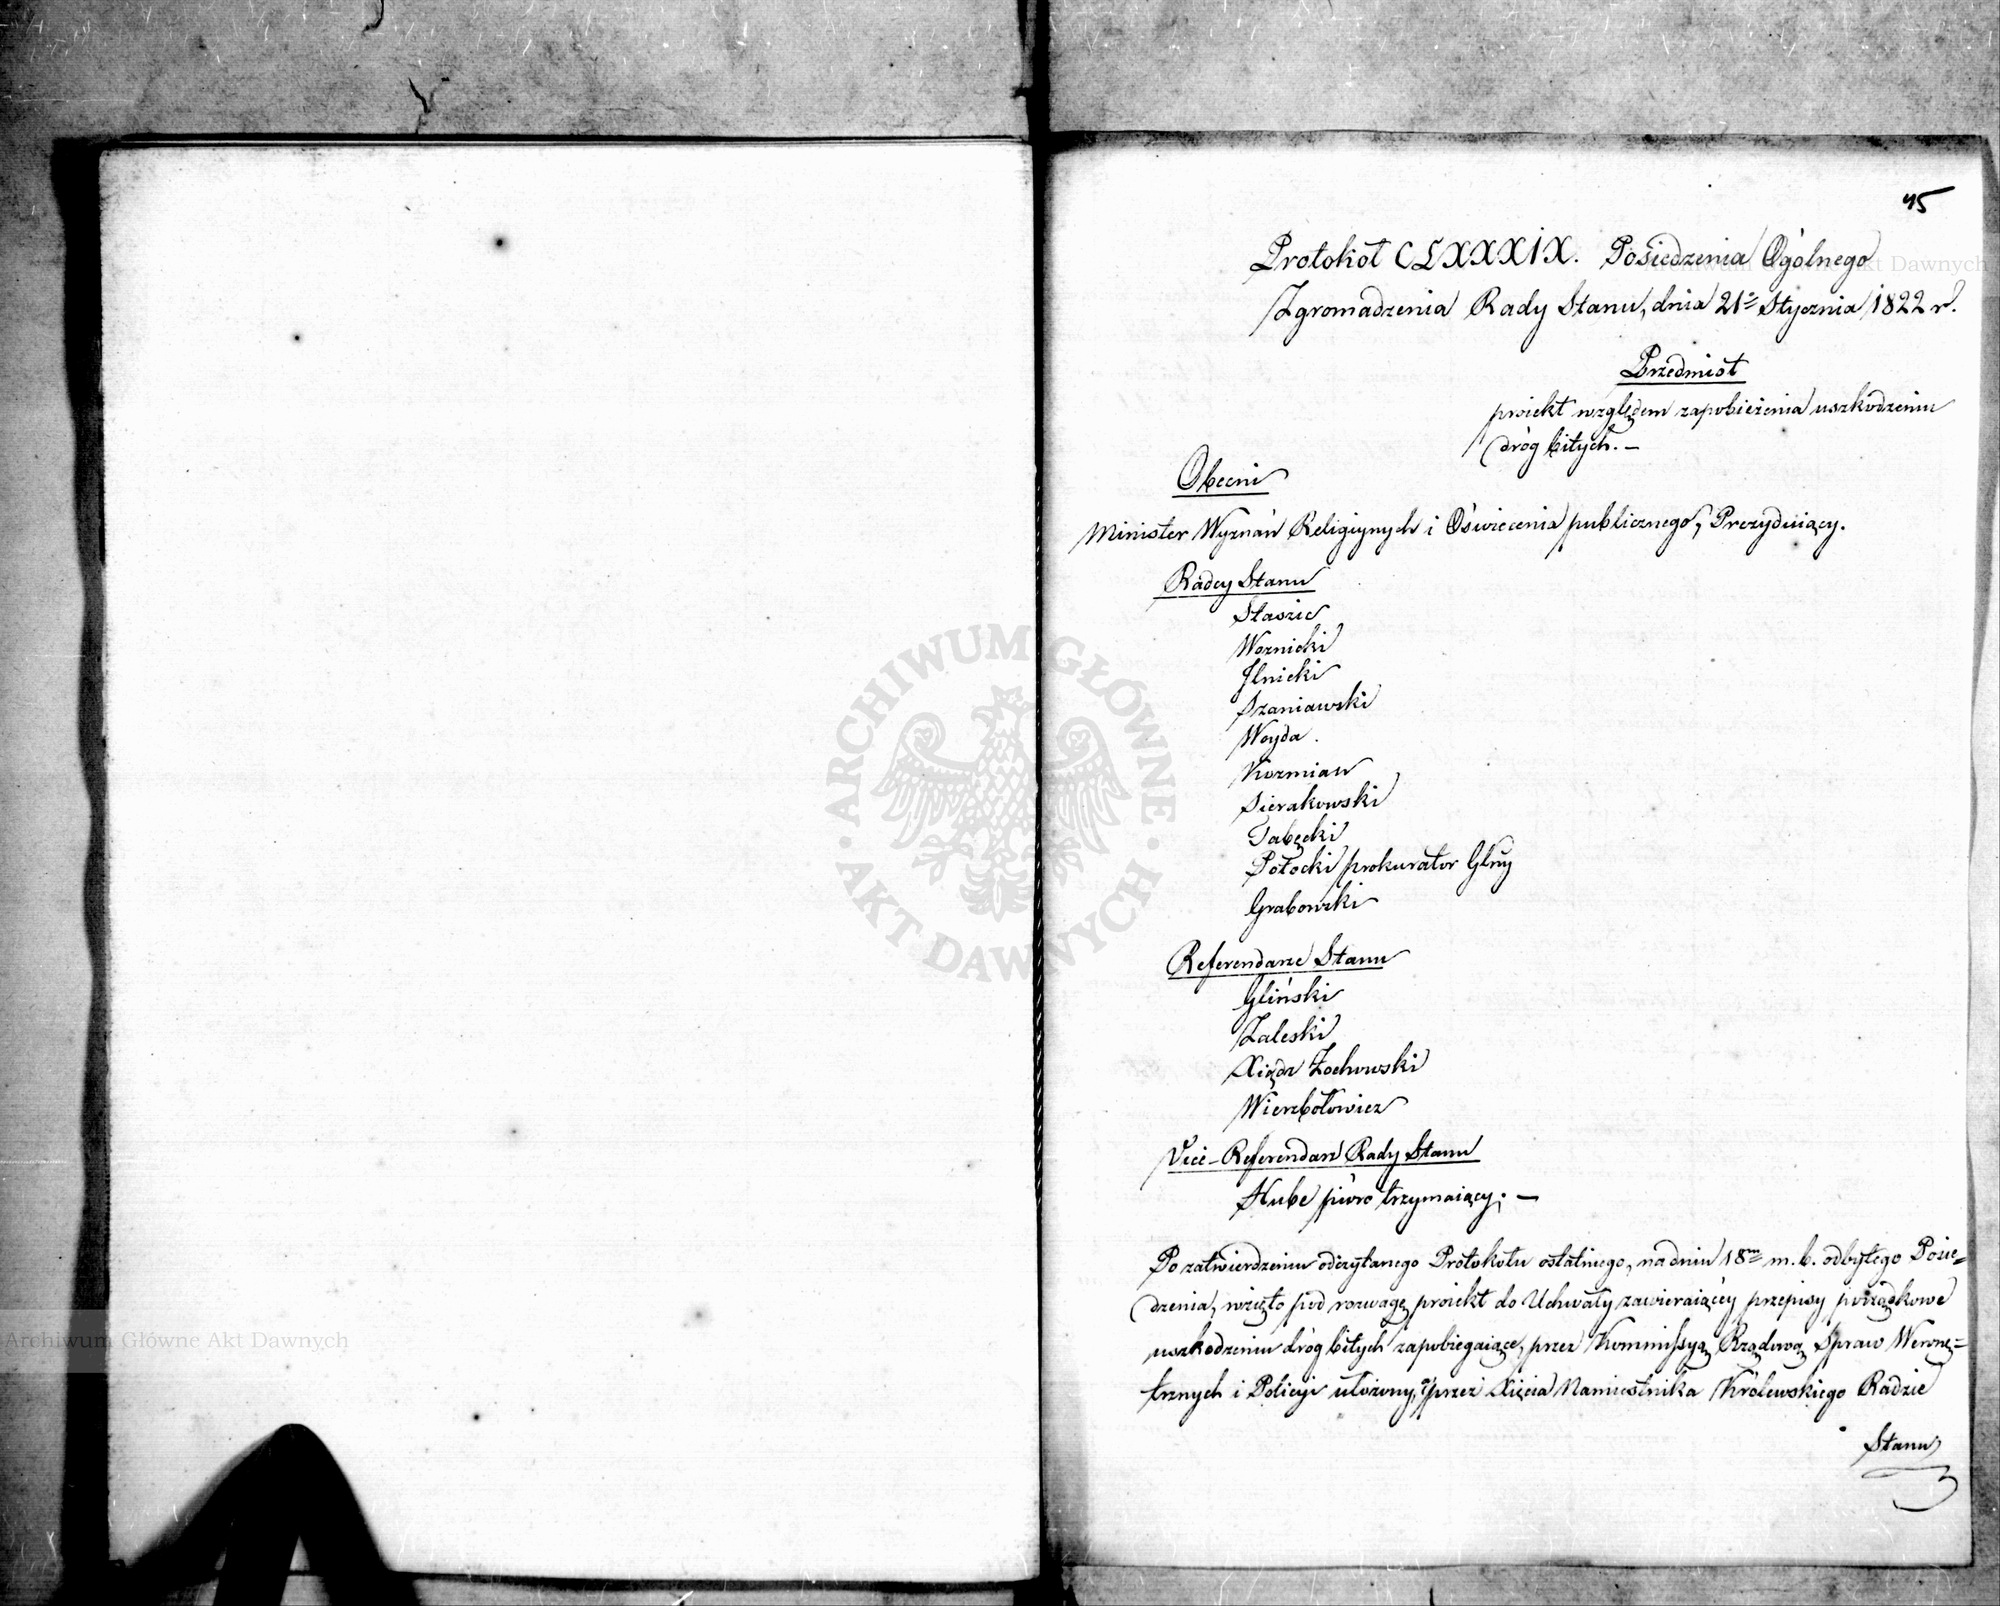 45
Protokół CLXXXIX. Posiedzenia Ogólnego
Zgromadzenia Rady Stanu, dnia 21° Stycznia 1822 r.
Przedmiot
proiekt względem zapobieżenia uszkodzeniu
dróg bitych. —
Obecni
Minister Wyznań Religiynych i Oświecenia publicznego, Prezyduiący.
Radcy Stanu
Staszic
Woznicki
Ilnicki
Szaniawski
Woyda.
Kozmian
Sierakowski
Tabęcki
Potocki prokurator Glny
Grabowski
Referendarze Stanu
Gliński
Zaleski
Xiądz Żochowski
Wierzbołowicz
Vice-Referendarz Rady Stanu
Hube pióro trzymaiący; —
Po zatwierdzeniu odczytanego Protokołu ostatniego, na dniu 18m m. b. odbytego Posie=
dzenia, wzięto pod rozwagę proiekt do Uchwały zawieraiącéy przepisy porządkowe
uszkodzeniu dróg bitych zapobiegaiące, przez Kommissyą Rządową Spraw Wewnę=
trznych i Policyi ułożony, przez Xięcia Namiestnika Królewskiego Radzie
Stanu
ARCHIWUM GŁÓWNE AKT DAWNYCH
Archiwum Główne Akt Dawnych
Archiwum Główne Akt Dawnych